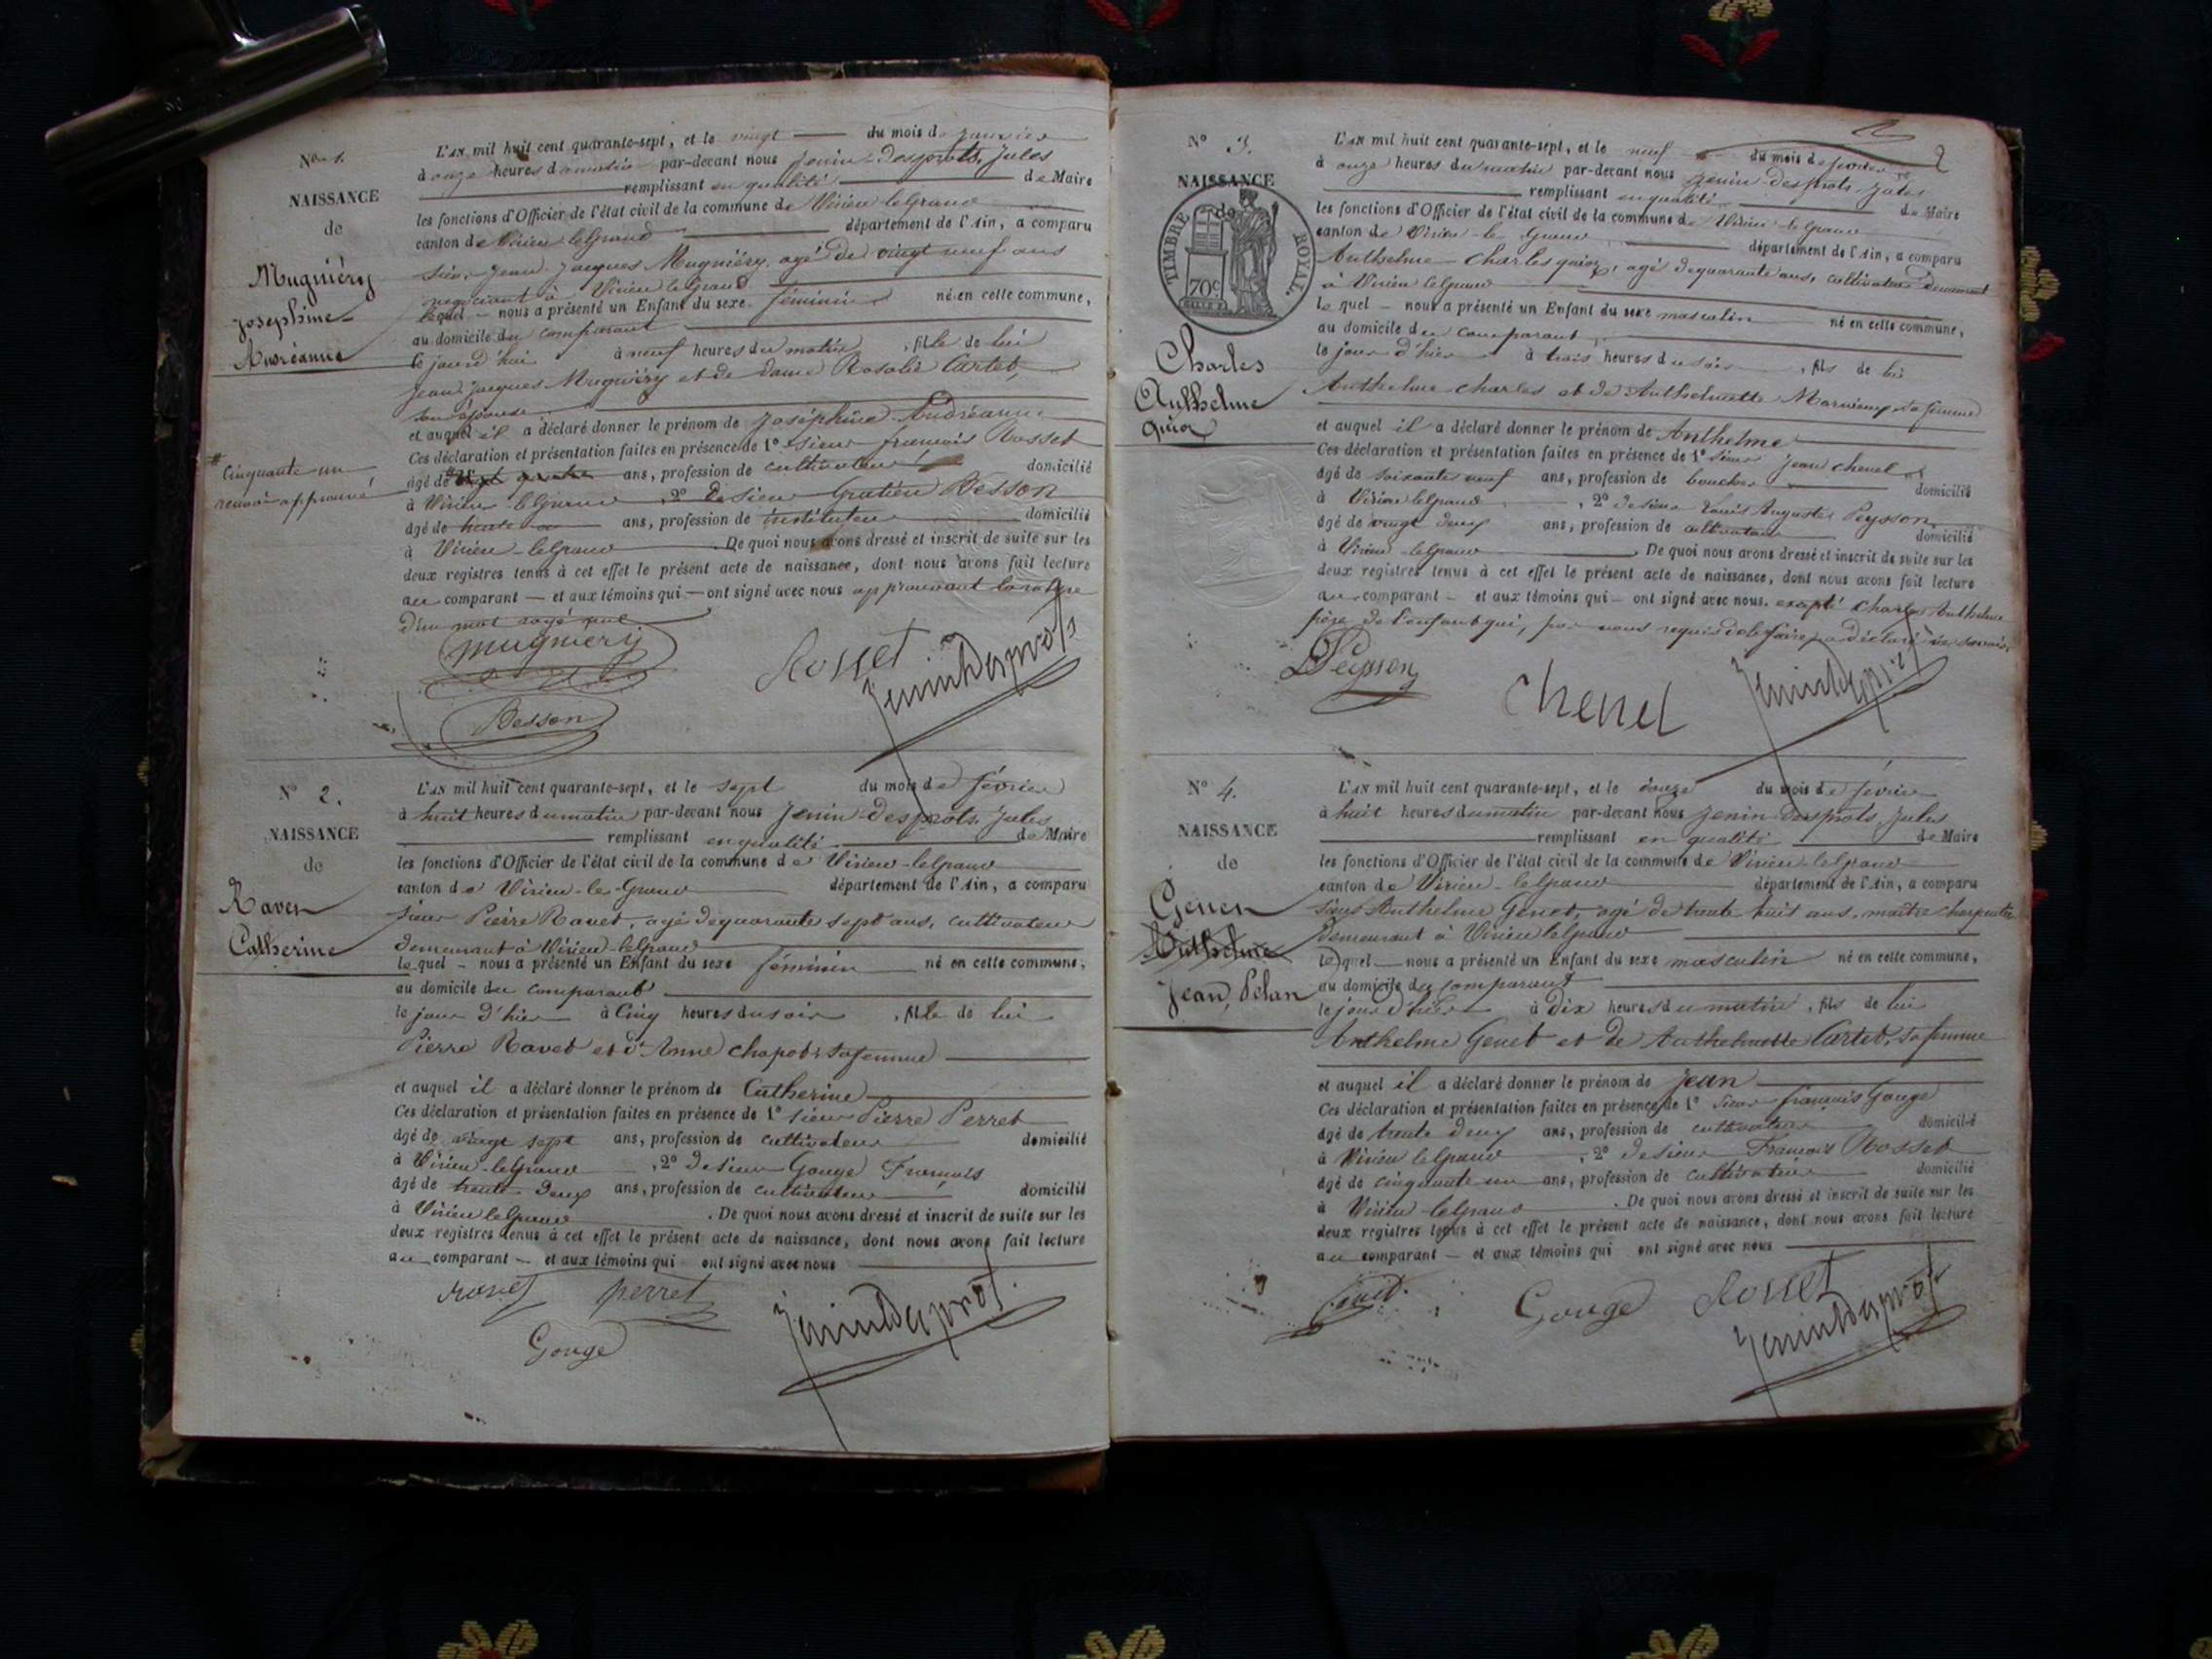 No 1.
NAISSANCE
de
Mugniéry
Joséphine
Andréanne
L'AN mil huit cent quarante-sept, et le vingt du mois de janvier
à onze heures du matin par-devant nous Jenin-Desprots, Jules
remplissant en qualité de Maire
les fonctions d'Officier de l'état civil de la commune de Virieu leGrand
canton de Virieu leGrand département de l'Ain, a comparu
Sieur Jean Jacques Mugniéry, agé de vingt neuf ans
négociant à Virieu le Grand
lequel — nous a présenté un Enfant du sexe féminin né en cette commune,
au domicile du comparant
le jour d'hui à neuf heures du matin, fille de lui
Jean Jacques Mugniéry et de dame Rosalie Cartet,
son épouse
et auquel il a déclaré donner le prénom de Joséphine Andréanne
Ces déclaration et présentation faites en présence de 1° sieur françois Rosset
# cinquante un
renvoi approuvé
âgé de # ans, profession de cultivateur domicilié
à Virieu leGrand, 2° de sieur Gratien Besson
âgé de trente ans, profession de instituteur domicilié
à Virieu-leGrand. De quoi nous avons dressé et inscrit de suite sur les
deux registres tenus à cet effet le présent acte de naissance, dont nous avons fait lecture
au comparant — et aux témoins qui — ont signé avec nous approuvant la rature
d'un mot rayé nul
Mugniery
Rosset
Jenin Desprots
Besson
N° 2.
NAISSANCE
de
Ravet
Catherine
L'AN mil huit cent quarante-sept, et le sept du mois de février
à huit heures du matin par-devant nous Jenin-Desprots, Jules
remplissant en qualité de Maire
les fonctions d'Officier de l'état civil de la commune de Virieu-leGrand
canton de Virieu-le-Grand département de l'Ain, a comparu
Sieur Pierre Ravet, agé de quarante sept ans, cultivateur
demeurant à Virieu-leGrand
lequel — nous a présenté un Enfant du sexe féminin né en cette commune,
au domicile du comparant
le jour d'hier à cinq heures du soir, fille de lui
Pierre Ravet et d'Anne Chapot sa femme
et auquel il a déclaré donner le prénom de Catherine
Ces déclaration et présentation faites en présence de 1° sieur Pierre Perret
âgé de vingt sept ans, profession de cultivateur domicilié
à Virieu-leGrand, 2° de sieur Gouge François
âgé de trente deux ans, profession de cultivateur domicilié
à Virieu leGrand. De quoi nous avons dressé et inscrit de suite sur les
deux registres tenus à cet effet le présent acte de naissance, dont nous avons fait lecture
au comparant — et aux témoins qui ont signé avec nous
ravet perret
Jenin Desprots
Gouge
2
N° 3.
NAISSANCE
de
TIMBRE ROYAL.
70c
Charles
Anthelme
L'AN mil huit cent quarante-sept, et le neuf du mois de février
à onze heures du matin par-devant nous Jenin-Desprots Jules
remplissant en qualité de Maire
les fonctions d'Officier de l'état civil de la commune de Virieu-leGrand
canton de Virieu-le Grand département de l'Ain, a comparu
Anthelme Charles, agé de quarante ans, cultivateur demeurant
à Virieu leGrand
lequel — nous a présenté un Enfant du sexe masculin né en cette commune,
au domicile du comparant,
le jour d'hier à trois heures du soir, fils de lui
Anthelme Charles et de Anthelmette sa femme
et auquel il a déclaré donner le prénom de Anthelme
Ces déclaration et présentation faites en présence de 1° sieur Jean Chenel
âgé de soixante neuf ans, profession de boucher domicilié
à Virieu leGrand, 2° de sieur Louis Auguste Peysson
âgé de vingt deux ans, profession de cultivateur domicilié
à Virieu-leGrand. De quoi nous avons dressé et inscrit de suite sur les
deux registres tenus à cet effet le présent acte de naissance, dont nous avons fait lecture
au comparant — et aux témoins qui — ont signé avec nous, excepté Charles Anthelme
père de l'enfant qui, par nous requis de le faire, a déclaré ne savoir.
Peysson
Chenel
Jenin Desprots
N° 4.
NAISSANCE
de
Genet
Anthelme
Jean
L'AN mil huit cent quarante-sept, et le douze du mois de février
à huit heures du matin par-devant nous Jenin-Desprots Jules
remplissant en qualité de Maire
les fonctions d'Officier de l'état civil de la commune de Virieu-leGrand
canton de Virieu-leGrand département de l'Ain, a comparu
sieur Anthelme Genet, agé de trente huit ans, maître charpentier
demeurant à Virieu leGrand
lequel — nous a présenté un Enfant du sexe masculin né en cette commune,
au domicile du comparant
le jour d'hier à dix heures du matin, fils de lui
Anthelme Genet et de Anthelmette Cartet, sa femme
et auquel il a déclaré donner le prénom de Jean
Ces déclaration et présentation faites en présence de 1° sieur françois Gouge
âgé de trente deux ans, profession de cultivateur domicilié
à Virieu leGrand, 2° de sieur François Rosset
âgé de cinquante un ans, profession de cultivateur domicilié
à Virieu-leGrand. De quoi nous avons dressé et inscrit de suite sur les
deux registres tenus à cet effet le présent acte de naissance, dont nous avons fait lecture
au comparant — et aux témoins qui ont signé avec nous
Genet
Gouge
Rosset
Jenin Desprots